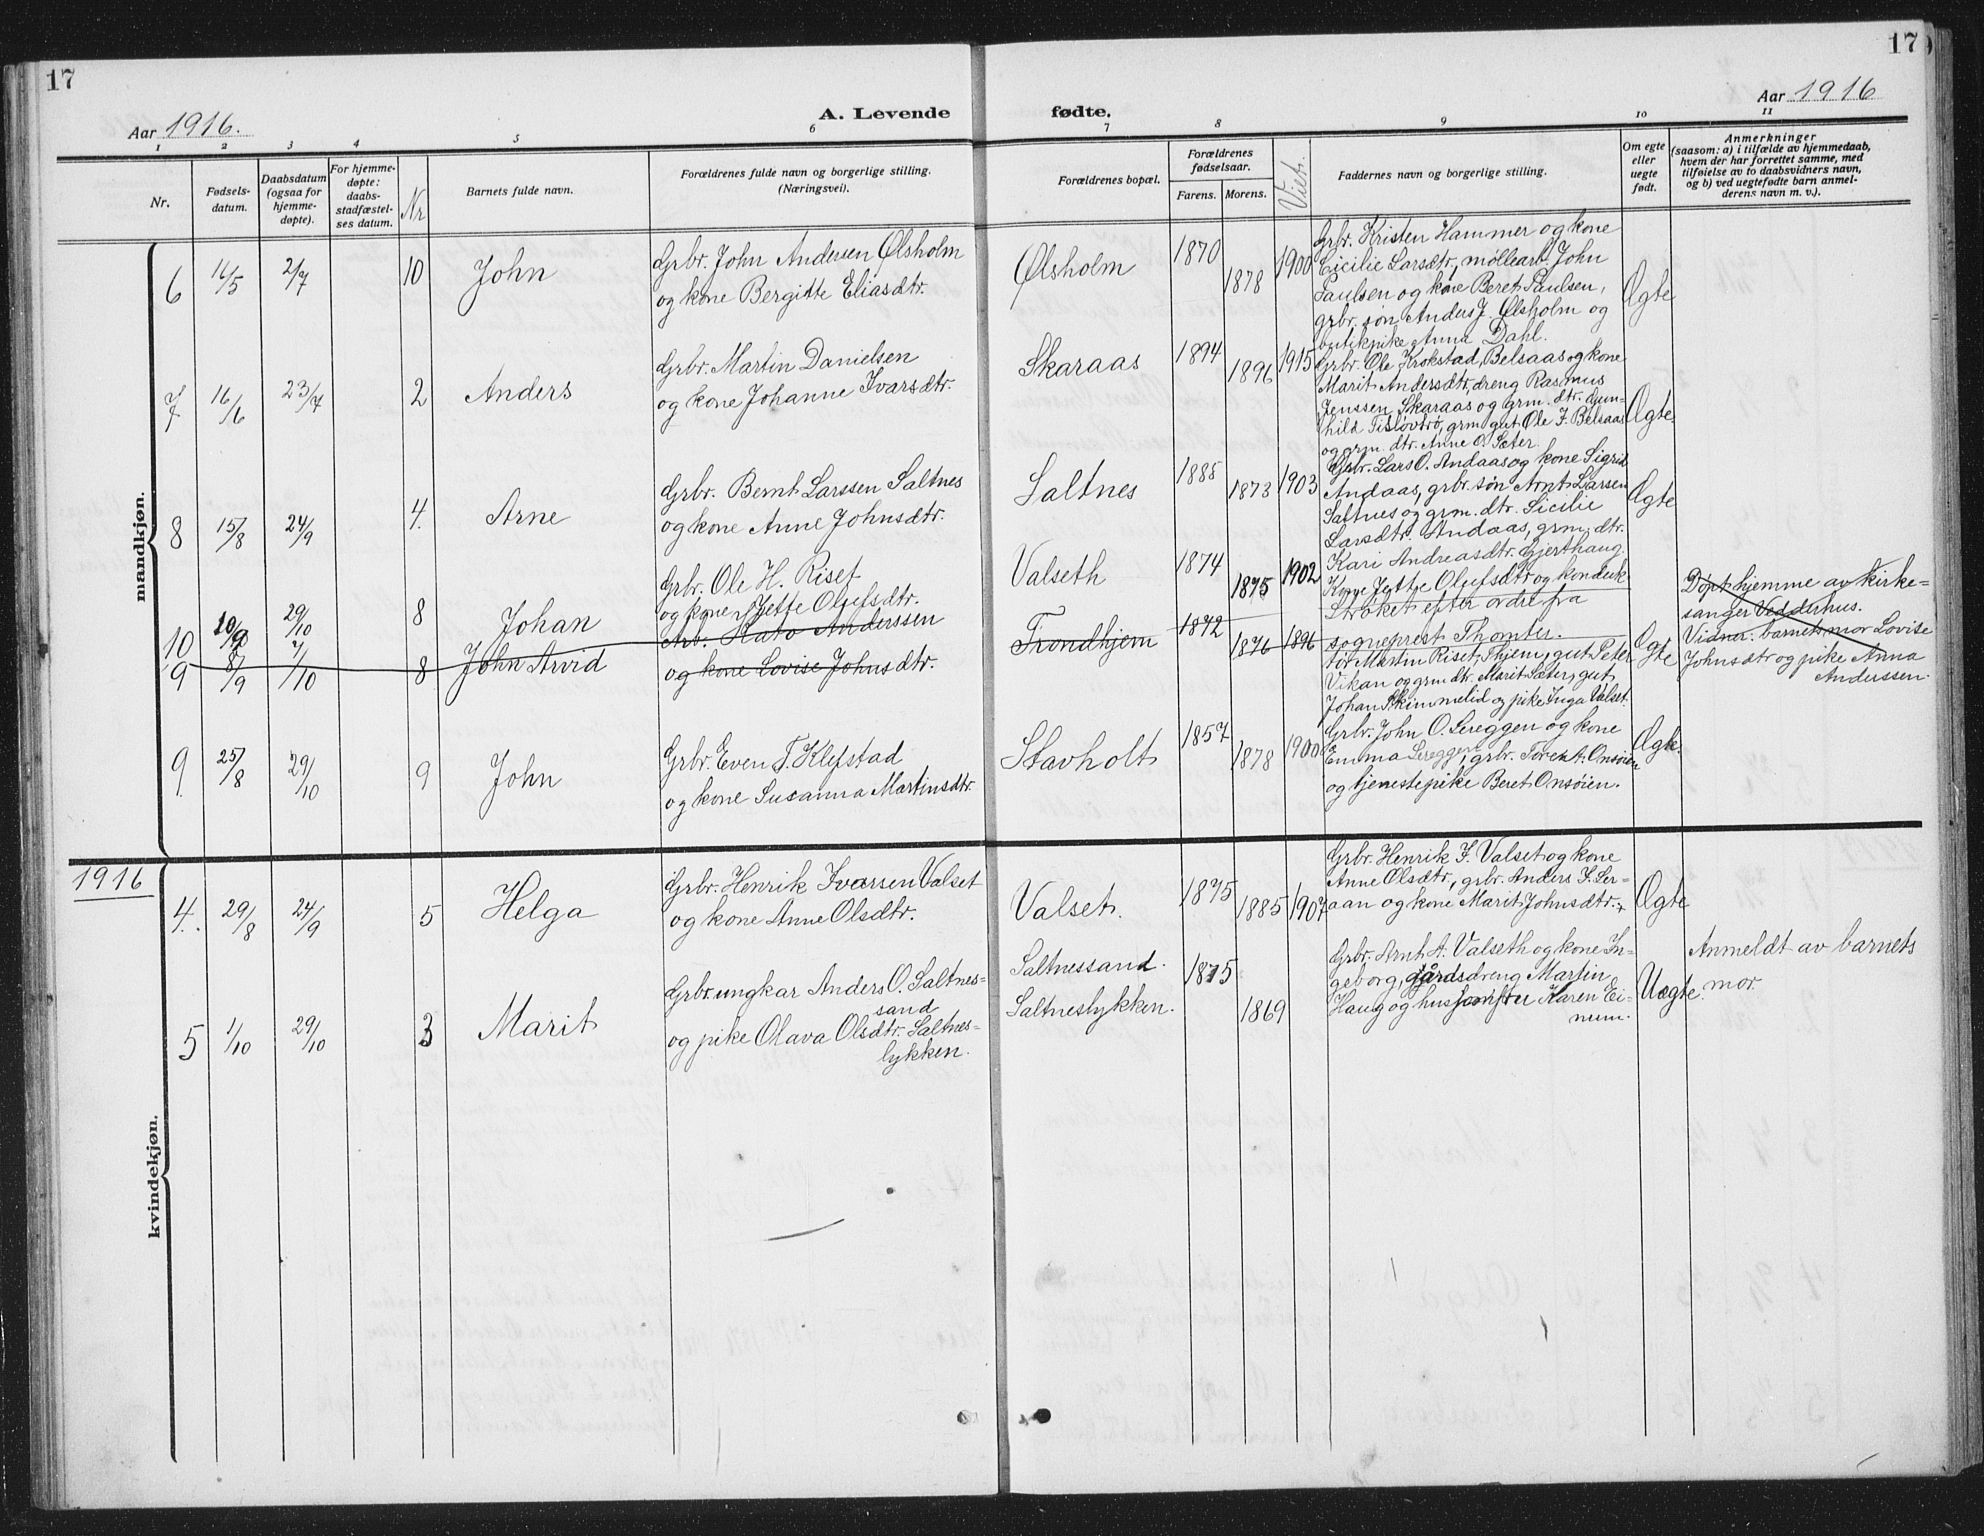 17
17
Aar 1916.
A. Levende fødte.
Aar 1916
1 2 3 4 5 6 7 8 9 10 11
Nr.
Fødsels-
datum.
Daabsdatum
(ogsaa for
hjemme-
døpte).
For hjemme-
døpte:
daabs-
stadfæstel-
ses datum.
Nr
Barnets fulde navn.
Forældrenes fulde navn og borgerlige stilling.
(Næringsvei).
Forældrenes bopæl.
Forældrenes
fødselsaar.
Farens. Morens.
Vieb.
Faddernes navn og borgerlige stilling.
Om egte
eller
uegte
født.
Anmerkninger
(saasom: a) i tilfælde av hjemmedaab,
hvem der har forrettet samme, med
tilføielse av to daabsvidners navn,
og b) ved uegtefødte barn anmel-
derens navn m. v.).
mandkjøn.
6 14/5 2/7 10 John
Grbr. John Andersen Ølsholm
og kone Bergitte Eliasdtr.
Ølsholm 1870 1878 1900
Grbr. Kristen Hammer og kone
Cicilie Larsdtr., møllearb. John
Paulsen og kone Beret Paulsen,
grbr. søn Anders J. Ølsholm og
butikpike Anna Dahl.
Ægte
7 16/6 23/7 2 Anders
Grbr. Martin Danielsen
og kone Johanne Ivarsdtr.
Skaraas 1894 1896 1915
Grbr. Ole Krokstad, Belsaas og kone
Marit Andersdtr., dreng Rasmus
Jenssen Skaraas og grm. dtr. Gun-
hild Tisløvtrø, grm. gut Ole J. Belsaas
og grm. dtr. Anne O. Sæter.
Ægte
8 15/8 24/9 4. Arne
Grbr. Bernt Larssen Saltnes
og kone Anne Johnsdtr.
Saltnes 1885 1873 1903
Grbr. Lars O. Andaas og kone Sigrid
Andaas, grbr. søn Arnt Larsen
Saltnes og grm. dtr. Sicilie
Larsdtr. Andaas, grm. dtr.
Kari Andreasdtr. Gjerthaug.
Ægte
10 10/9 29/10 8 Johan
Grbr. Ole H. Riset
og kone Jette Olufsdtr.
Valseth 1874 1875 1902
Kone Jette Olufsdtr og konduk-
Strøket efter ordre fra
sogneprest Thomter.
tør Martin Riset, Thjem, gut Peter
Vikan og grm dtr. Marit Sæter, gut
Johan Skimmelid og pike Inga Valset.
Ægte
9 8/9 7/10 8 John Arvid
Arb. Kato Anderssen
og kone Lovise Johnsdtr.
Trondhjem 1872 1876 1896
Døpt hjemme av kirke-
sanger Vedderhus.
Vidner: barnets mor Lovise
Johnsdtr og pike Anna
Anderssen.
9 25/8 29/10 9 John
Grbr. Even T. Klefstad
og kone Susanna Martinsdtr.
Stavholt 1857 1878 1900
Grbr. John O. Sereggen og kone
Emma Sereggen, grbr. Tore A. Onsøien
og tjenestepike Beret Onsøien.
Ægte
1916
kvindekjøn.
4. 29/8 24/9 5 Helga
Grbr. Henrik Ivarsen Valset
og kone Anne Olsdtr.
Valset. 1875 1885 1907
Grbr. Henrik J. Valset og kone
Anne Olsdtr., grbr. Anders J. Ser-
aan og kone Marit Johnsdtr.
Ægte
5 1/10 29/10 3 Marit
Grbr. ungkar Anders O. Saltnes-
sand
og pike Olava Olsdtr. Saltnes-
lykken.
Saltnessand.
Saltneslykken.
1875 1869
Grbr. Arnt A. Valseth og kone In-
geborg, gårdsdreng Martin
Haug og husjomfru Karen Ei-
num.
Uægte.
Anmeldt av barnets
mor.